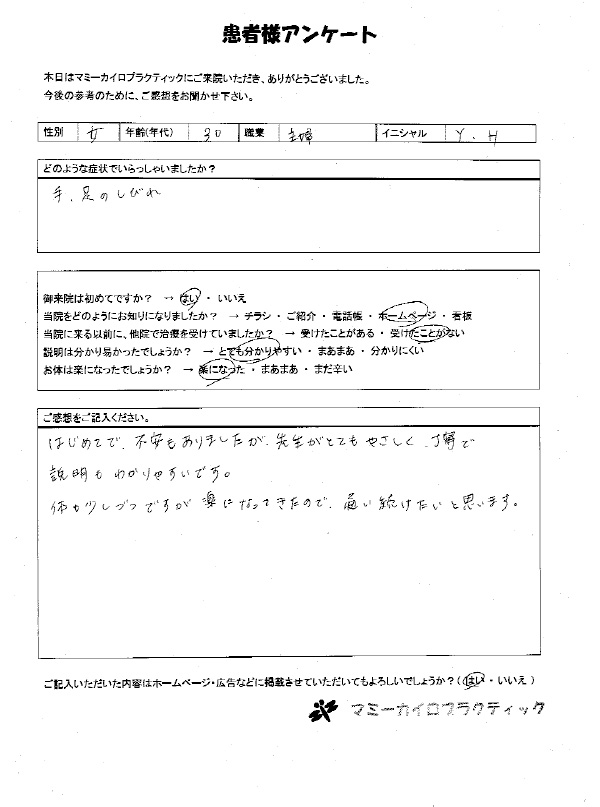 患者様アンケート
本日はマミーカイロプラクティックにご来院いただき、ありがとうございました。
今後の参考のために、ご感想をお聞かせ下さい。
性別 女 年齢(年代) 30 職業 主婦 イニシャル Y.H
どのような症状でいらっしゃいましたか？
手、足のしびれ
御来院は初めてですか？ → はい ・ いいえ
当院をどのようにお知りになりましたか？ → チラシ ・ ご紹介 ・ 電話帳 ・ ホームページ ・ 看板
当院に来る以前に、他院で治療を受けていましたか？ → 受けたことがある ・ 受けたことがない
説明は分かり易かったでしょうか？ → とても分かりやすい ・ まあまあ ・ 分かりにくい
お体は楽になったでしょうか？ → 楽になった ・ まあまあ ・ まだ辛い
ご感想をご記入ください。
はじめてで、不安もありましたが、先生がとてもやさしく、丁寧で
説明もわかりやすいです。
体も少しづつですが楽になってきたので、通い続けたいと思います。
ご記入いただいた内容はホームページ・広告などに掲載させていただいてもよろしいでしょうか？（はい・いいえ）
マミーカイロプラクティック